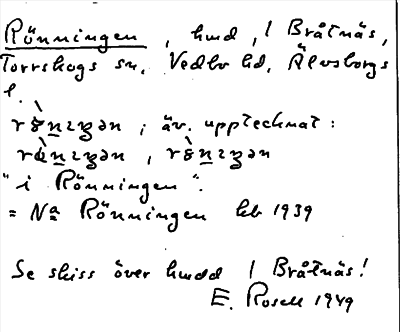 Rönningen, hmd, l Bråtnäs,
Torrskogs sn, Vedbo hd, Älvsborgs
l.
äv. upptecknat:
"i Rönningen".
= Na Rönningen kb 1939
Se skiss över hmdd l Bråtnäs!
E. Rosell 1949